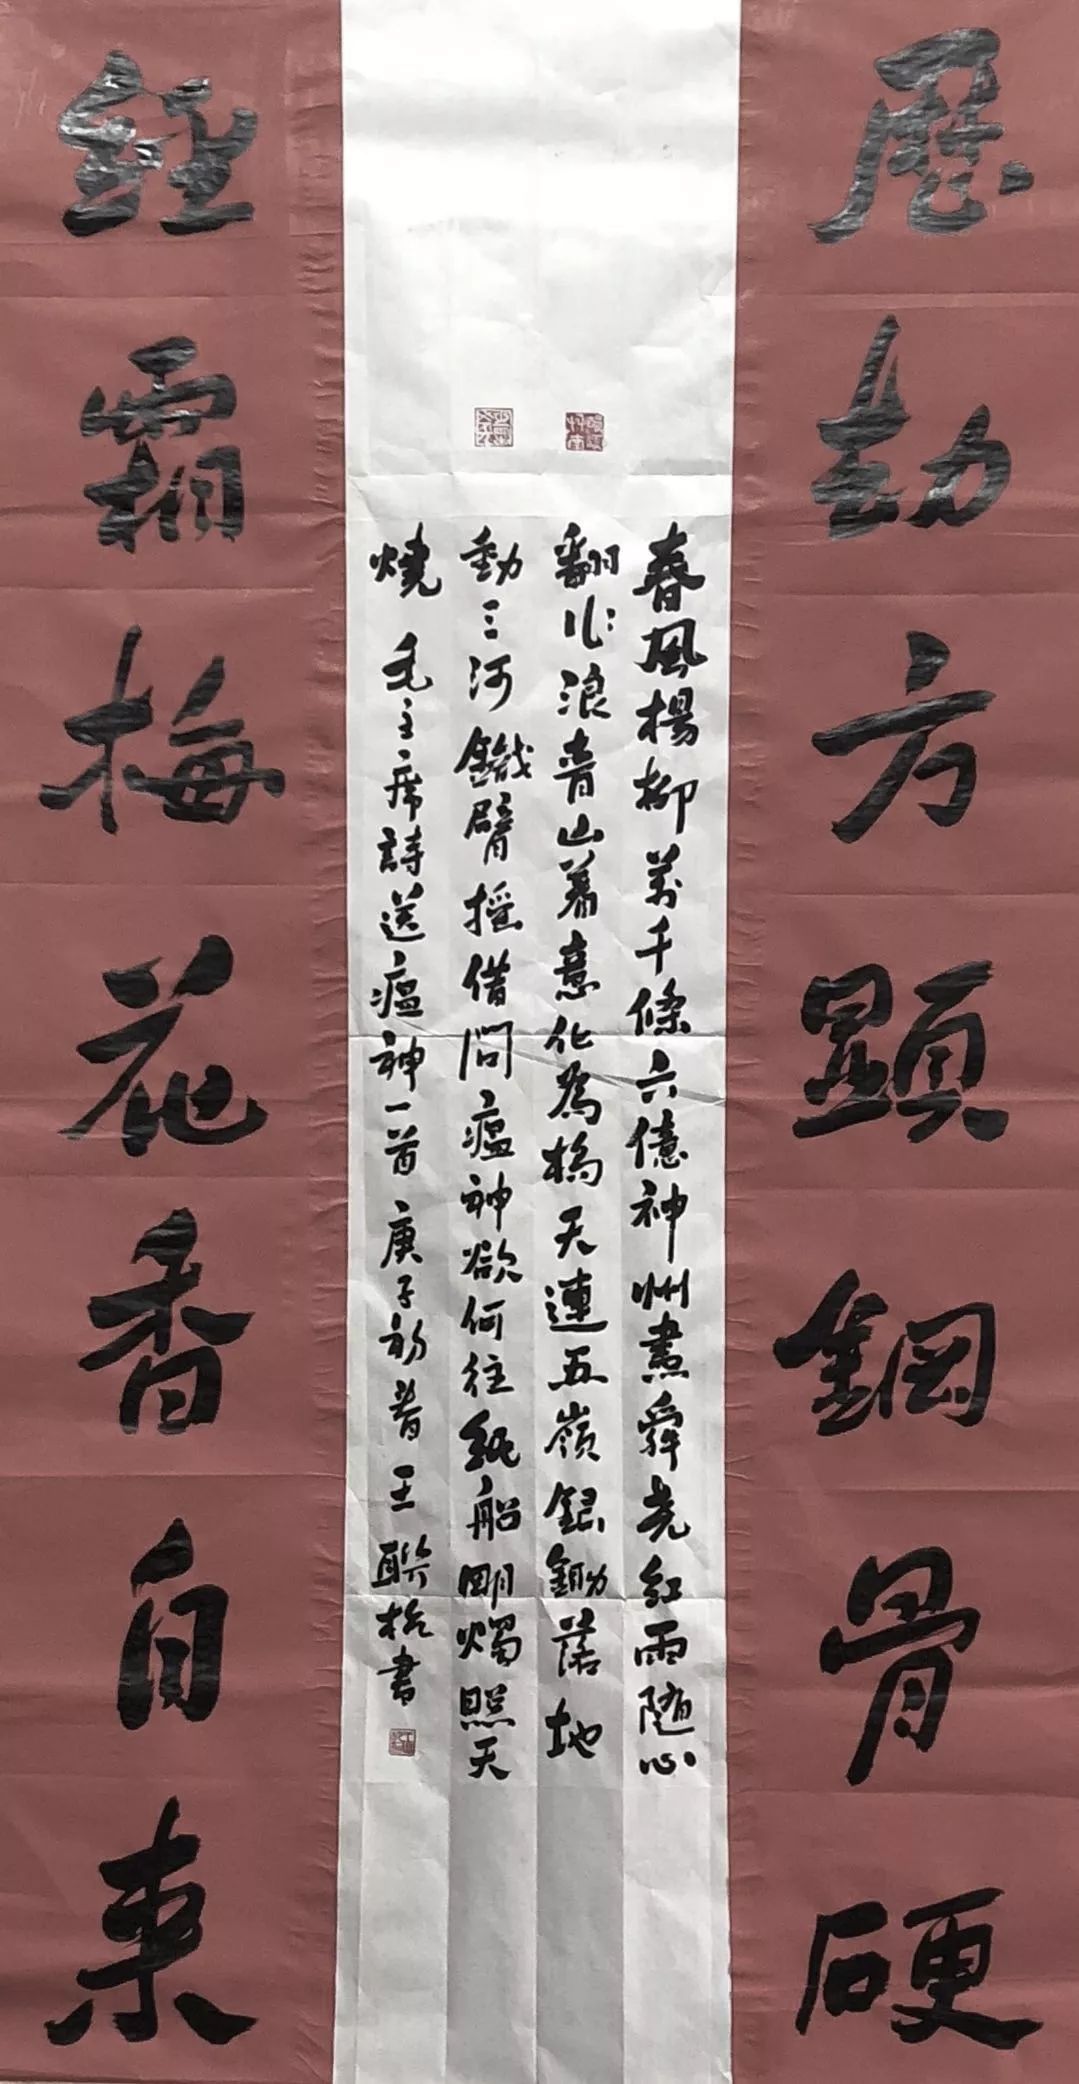 歷劫方顯鋼骨硬
春風楊柳萬千條六億神州盡舜堯紅雨隨心
翻作浪青山著意化為橋天連五嶺銀鋤落地
動三河鐵臂搖借問瘟神欲何往紙船明燭照天
燒 毛主席詩送瘟神一首庚子初春王聯書
經霜梅花香自來